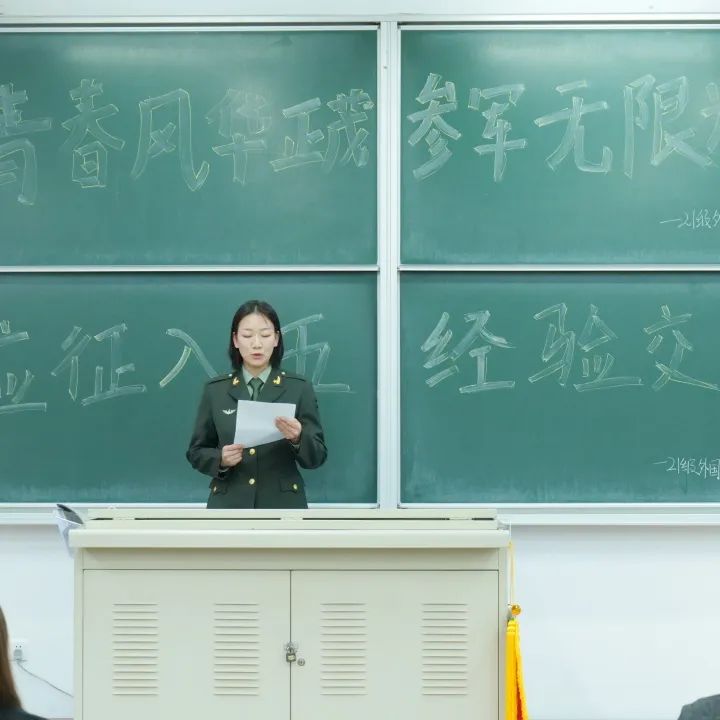 青春风华正茂 参军无限
—21级外
应征入伍 经验交
—21级外国